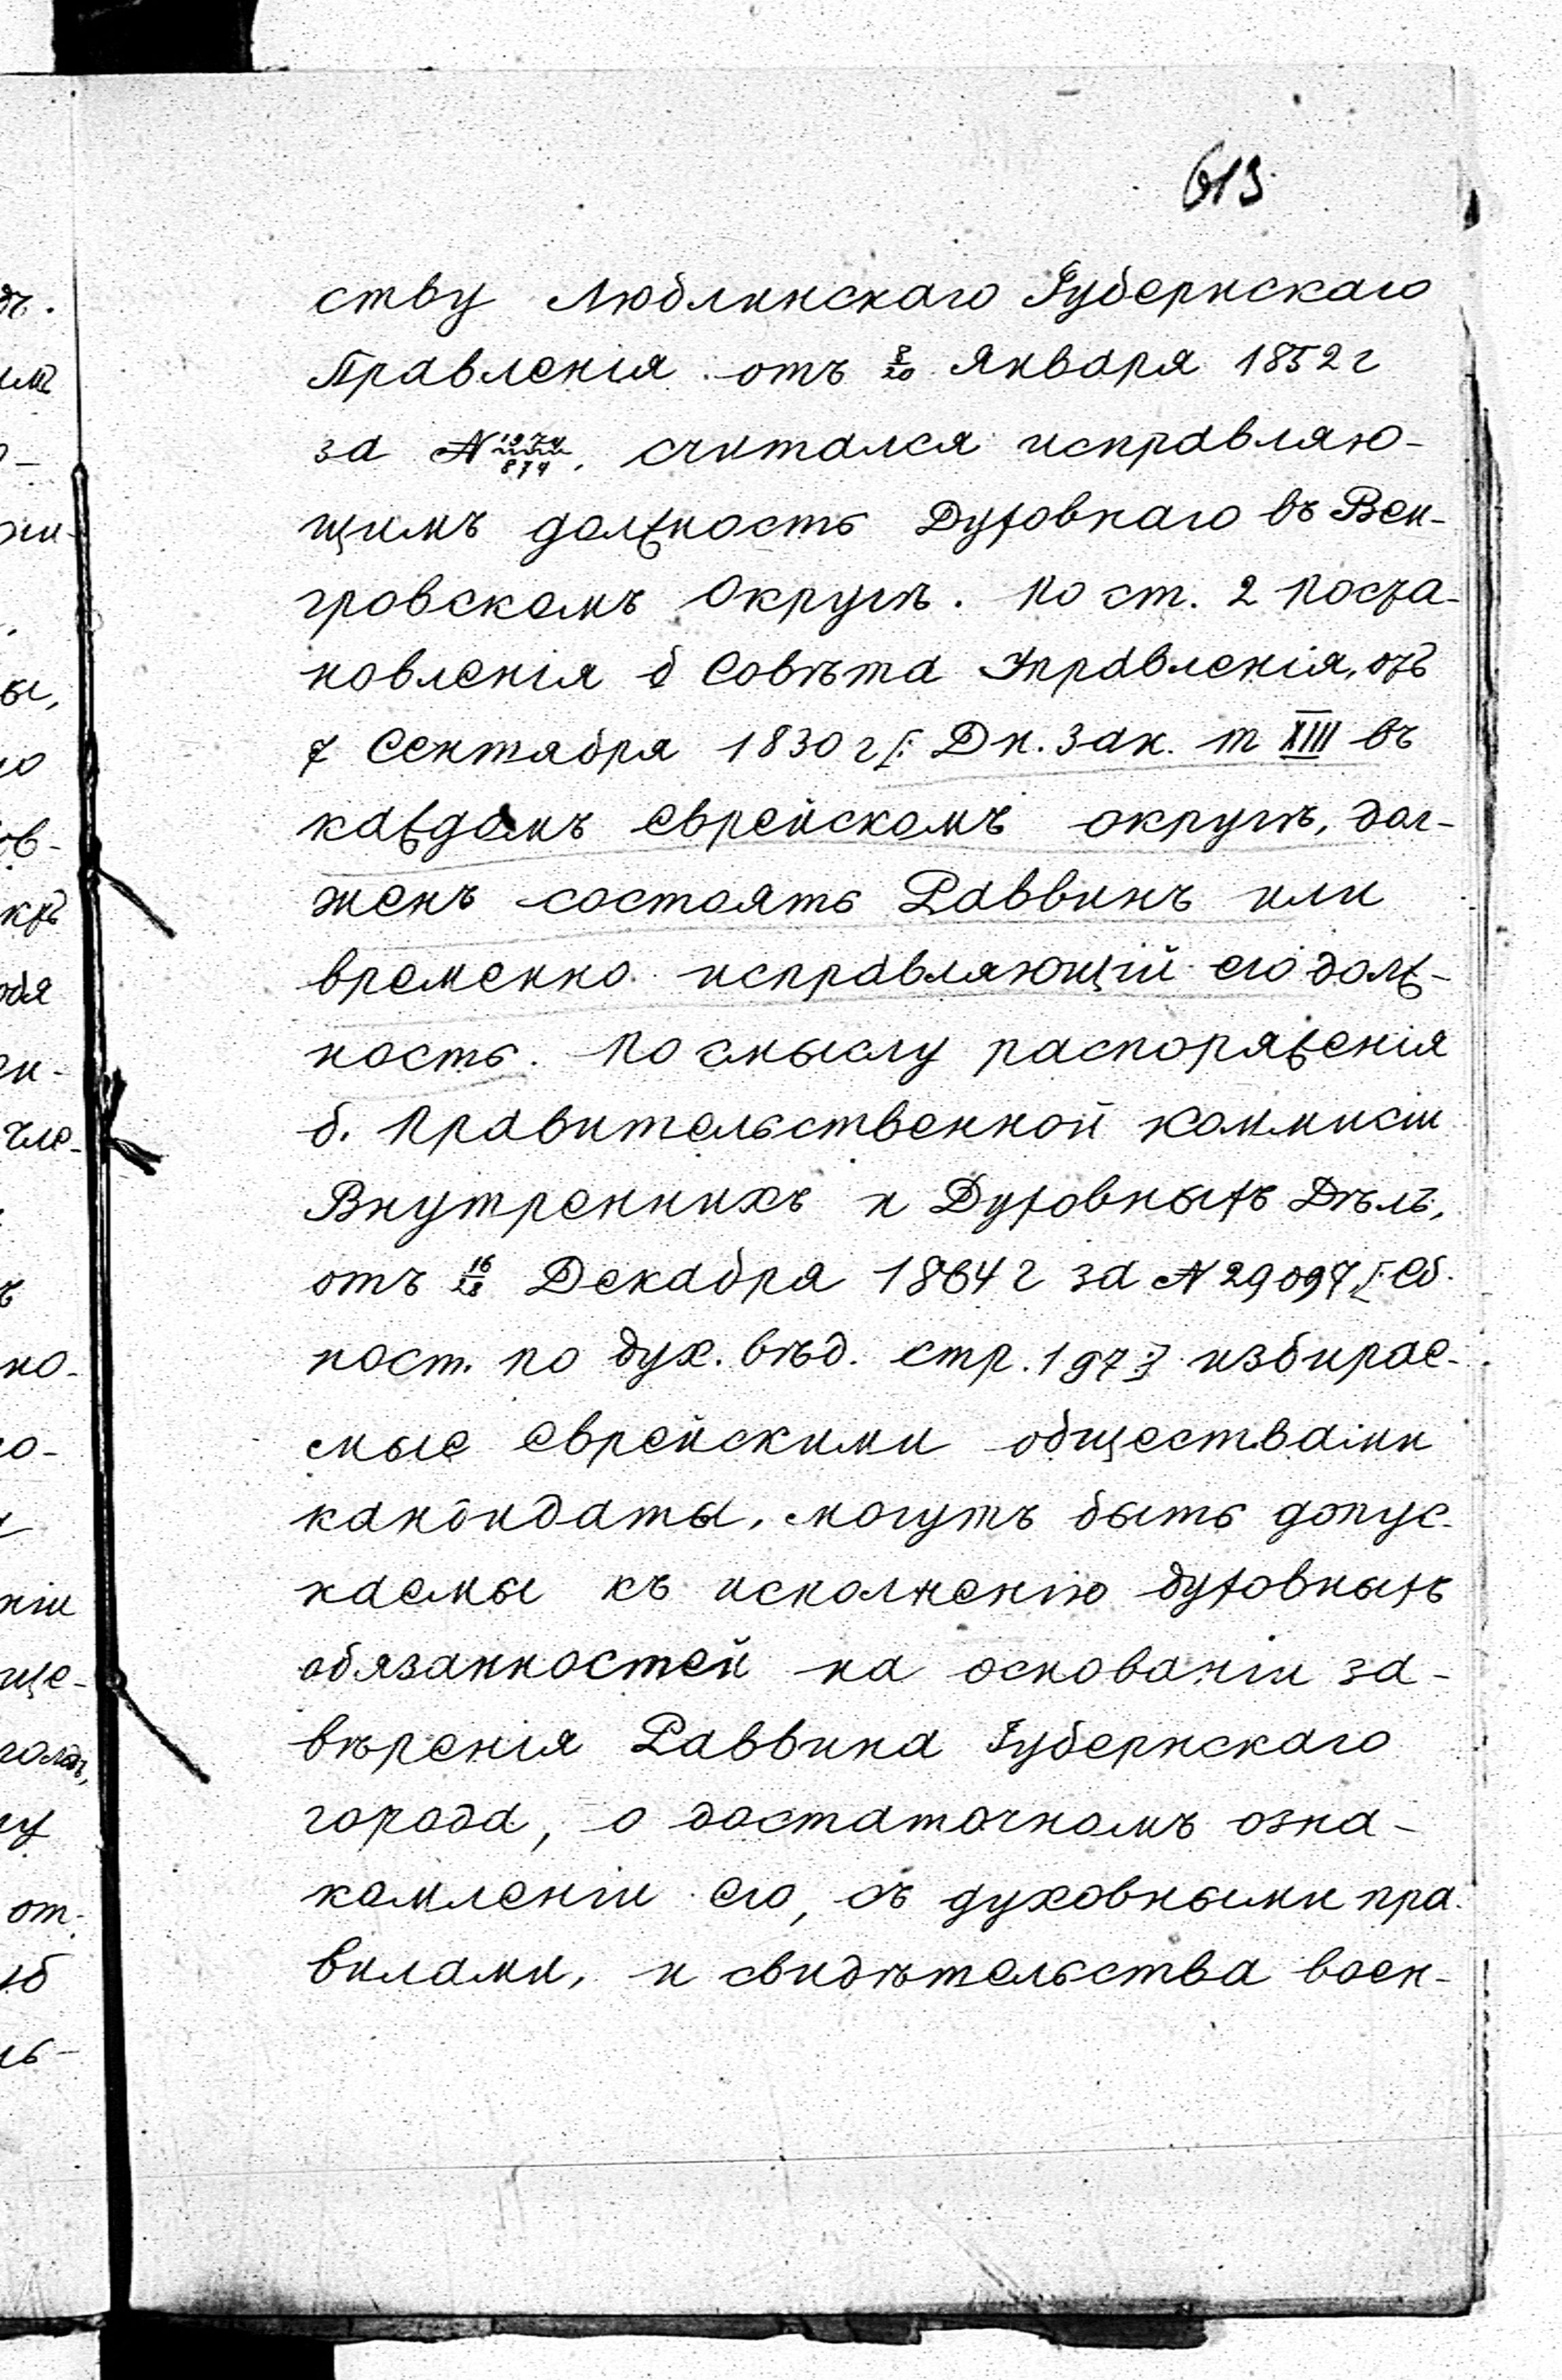 613
ству Люблинскаго Губернскаго
Правленія отъ 8/20 Января 1852 г
за N 1974/874, считался исправляю-
щимъ должность Духовнаго въ Вен-
гровскомъ Округѣ. По ст. 2 Поста-
новленія б Совѣта Управленія, отъ
7 Сентября 1830 г [: Дн. Зак. т XIII въ
каждомъ еврейскомъ округѣ, дол-
женъ состоять Раввинъ или
временно исправляющій его долж-
ность. По смыслу распоряженія
б. Правительственной Коммисіи
Внутреннихъ и Духовныхъ Дѣлъ,
отъ 16/28 Декабря 1864 г за N 29097 [: Сб.
пост. по дух. вѣд. стр. 197 :] избирае-
мые еврейскими обществами
кандидаты, могутъ быть допус-
каемы къ исполненію духовныхъ
обязанностей на основаніи за-
вѣренія Раввина Губернскаго
города, о достаточномъ озна-
комленіи его, съ духовными пра-
вилами, и свидѣтельства воен-